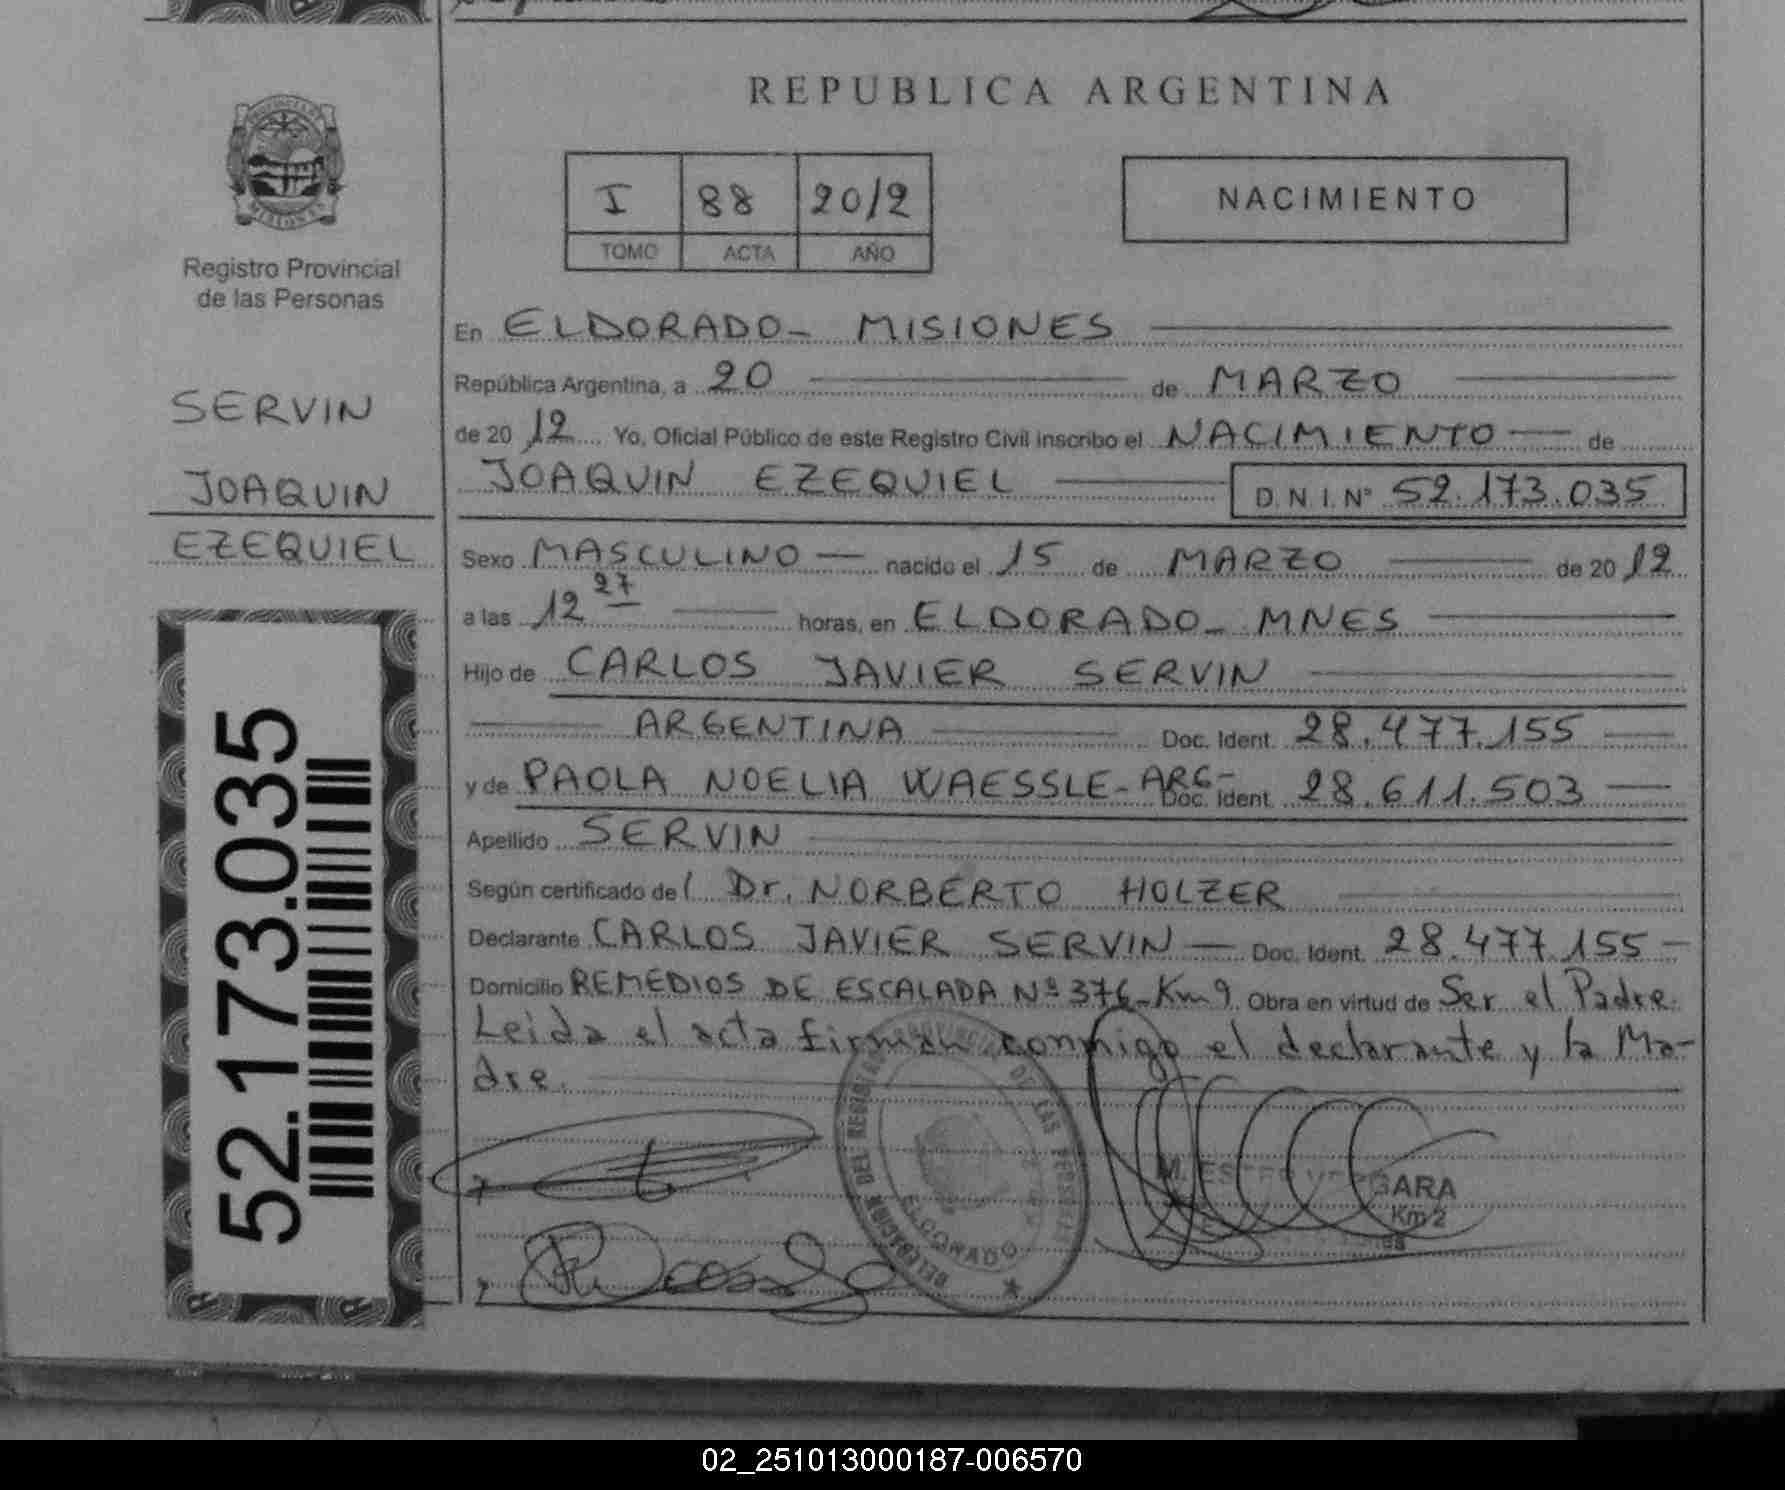 REPUBLICA ARGENTINA
I 88 2012
TOMO ACTA AÑO
NACIMIENTO
PROVINCIA DE
MISIONES
Registro Provincial
de las Personas
SERVIN
JOAQUIN
EZEQUIEL
52.173.035
En ELDORADO - MISIONES
República Argentina, a 20 de MARZO
de 2012 Yo, Oficial Público de este Registro Civil inscribo el NACIMIENTO de
JOAQUIN EZEQUIEL D.N.I. Nº 52.173.035
Sexo MASCULINO nacido el 15 de MARZO de 2012
a las 12 27 horas, en ELDORADO - MNES
Hijo de CARLOS JAVIER SERVIN
ARGENTINA Doc. Ident. 28.477.155
y de PAOLA NOELIA WAESSLE - ARG - Doc. Ident. 28.611.503
Apellido SERVIN
Según certificado del Dr. NORBERTO HOLZER
Declarante CARLOS JAVIER SERVIN Doc. Ident. 28.477.155
Domicilio REMEDIOS DE ESCALADA Nº 376 - Km 9. Obra en virtud de Ser el Padre.
Leida el acta firman conmigo el declarante y la Ma-
dre.
DELEGACION DEL REGISTRO PROVINCIAL DE LAS PERSONAS
ELDORADO
M. ESTER VERGARA
Km 2
02_251013000187-006570